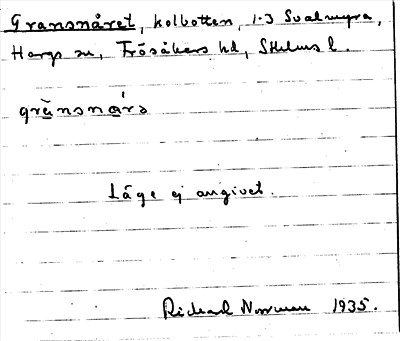 Gransnåret, kolbotten, 1-3 Svalmyra,
Hargs sn, Frösåkers hd, Sthlms l.
grà̲nsná̲rə
Läge ej angivet.
Richard Norrman 1935.